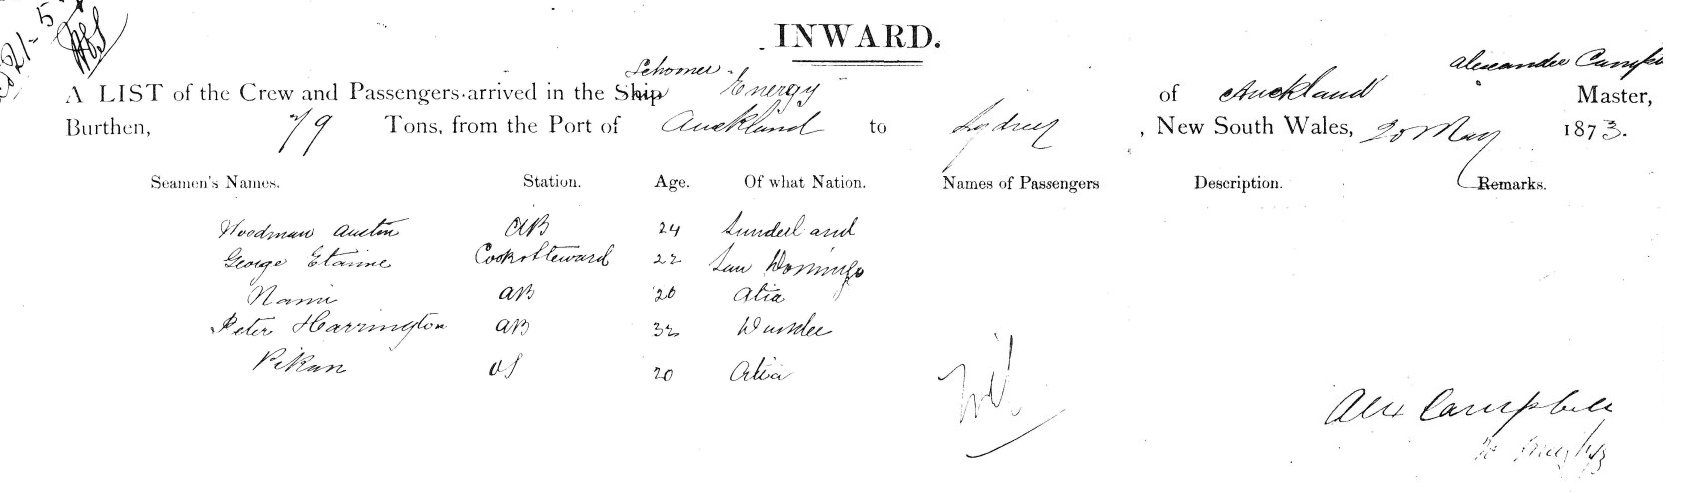 21-5
INWARD.
Schooner
Alexander Campbe
A LIST of the Crew and Passengers arrived in the Ship Energy of Auckland Master,
Burthen, 79 Tons, from the Port of Auckland to Sydney, New South Wales, 20 May 1873.
Seamen's Names. Station. Age. Of what Nation. Names of Passengers Description. Remarks.
Woodman Austin AB 24 Sunderland
George Etanne Cook & Steward 22 San Domingo
Nami AB 20 Atia
Peter Harrington AB 32 Dundee
Pikun OS 20 Atia
Nil
Alex Campbell
20 May /73